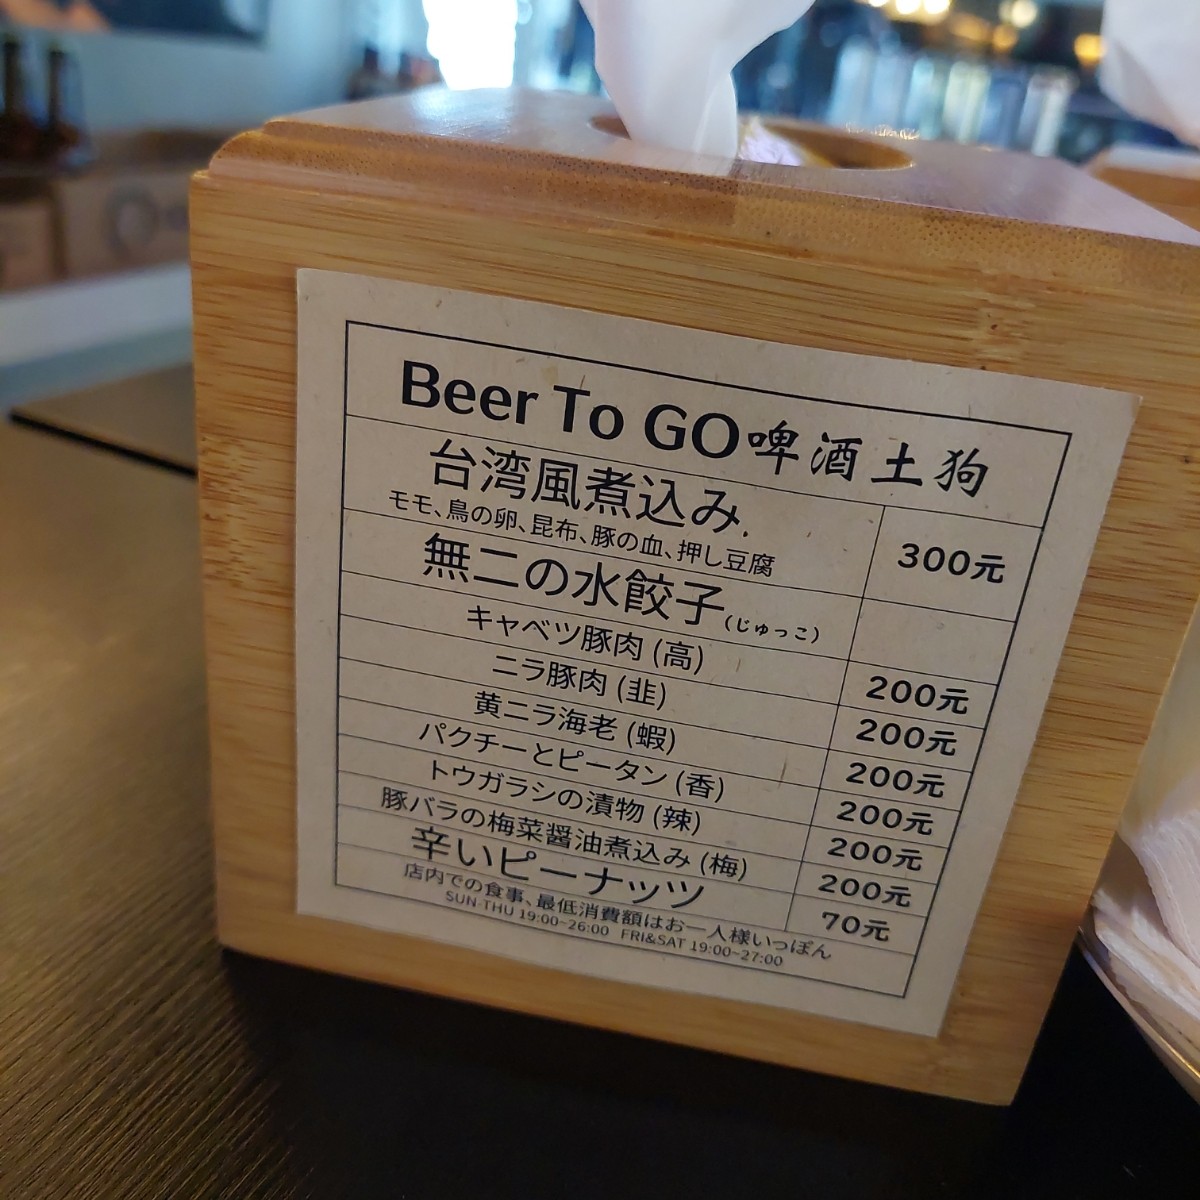 Beer To GO啤酒土狗
台湾風煮込み.
モモ、鳥の卵、昆布、豚の血、押し豆腐
300元
無二の水餃子(じゅっこ)
キャベツ豚肉 (高)
200元
ニラ豚肉 (韭)
200元
黄ニラ海老 (蝦)
200元
パクチーとピータン (香)
200元
トウガラシの漬物 (辣)
200元
豚バラの梅菜醤油煮込み (梅)
200元
辛いピーナッツ
70元
店内での食事、最低消費額はお一人様いっぽん
SUN-THU 19:00~26:00 FRI&SAT 19:00~27:00